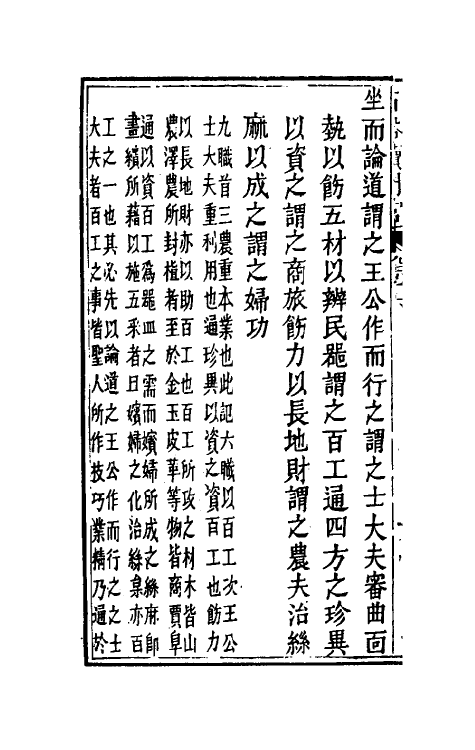 坐而論道謂之王公作而行之謂之士大夫審曲面
埶以飭五材以辨民噐謂之百工通四方之珍異
以資之謂之商旅飭力以長地財謂之農夫治絲
麻以成之謂之婦功
九職首三農重本業也此記六職以百工次王公
士大夫重利用也通珍異以資之資百工也飭力
以長地財亦以助百工也百工所攻之材木皆山
農澤農所封植者至於金玉皮革等物皆商賈阜
通以資百工爲噐皿之需而嬪婦所成之絲麻即
畫繢所藉以施五采者且嬪婦之化治絲枲亦百
工之一也其必先以論道之王公作而行之之士
大夫者百工之事皆聖人所作技巧業精乃通於